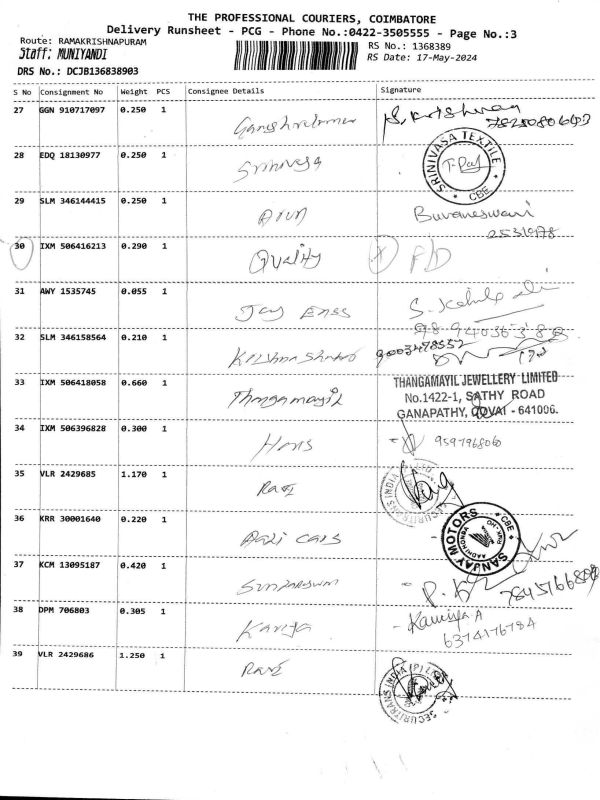 THE PROFESSIONAL COURIERS, COIMBATORE
Delivery Runsheet - PCG - Phone No.:0422-3505555 - Page No.:3
Route: RAMAKRISHNAPURAM
Staff: MUNIYANDI
DRS No.: DCJB136838903
RS No.: 1368389
RS Date: 17-May-2024
S No Consignment No Weight PCS Consignee Details Signature
27 GGN 910717097 0.250 1 S. Krishna
28 EDQ 18130977 0.250 1 Srinivasa SRINIVASA TEXTILE CBE
29 SLM 346144415 0.250 1 Arun Buvaneswari
30 IXM 506416213 0.290 1 Quality F/D
31 AWY 1535745 0.055 1 Jay Enss
32 SLM 346158564 0.210 1 9003478552
33 IXM 506418058 0.660 1 Thangamayil THANGAMAYIL JEWELLERY LIMITED
No.1422-1, SATHY ROAD
GANAPATHY, COVAI - 641006.
34 IXM 506396828 0.300 1 9597968060
35 VLR 2429685 1.170 1 Ravi
36 KRR 30001640 0.220 1 Cars SANJAY MOTORS CBE
37 KCM 13095187 0.420 1
38 DPM 706803 0.305 1 Kaviya A
6374176784
39 VLR 2429686 1.250 1 Ravi SECURITRANS INDIA (P) LTD